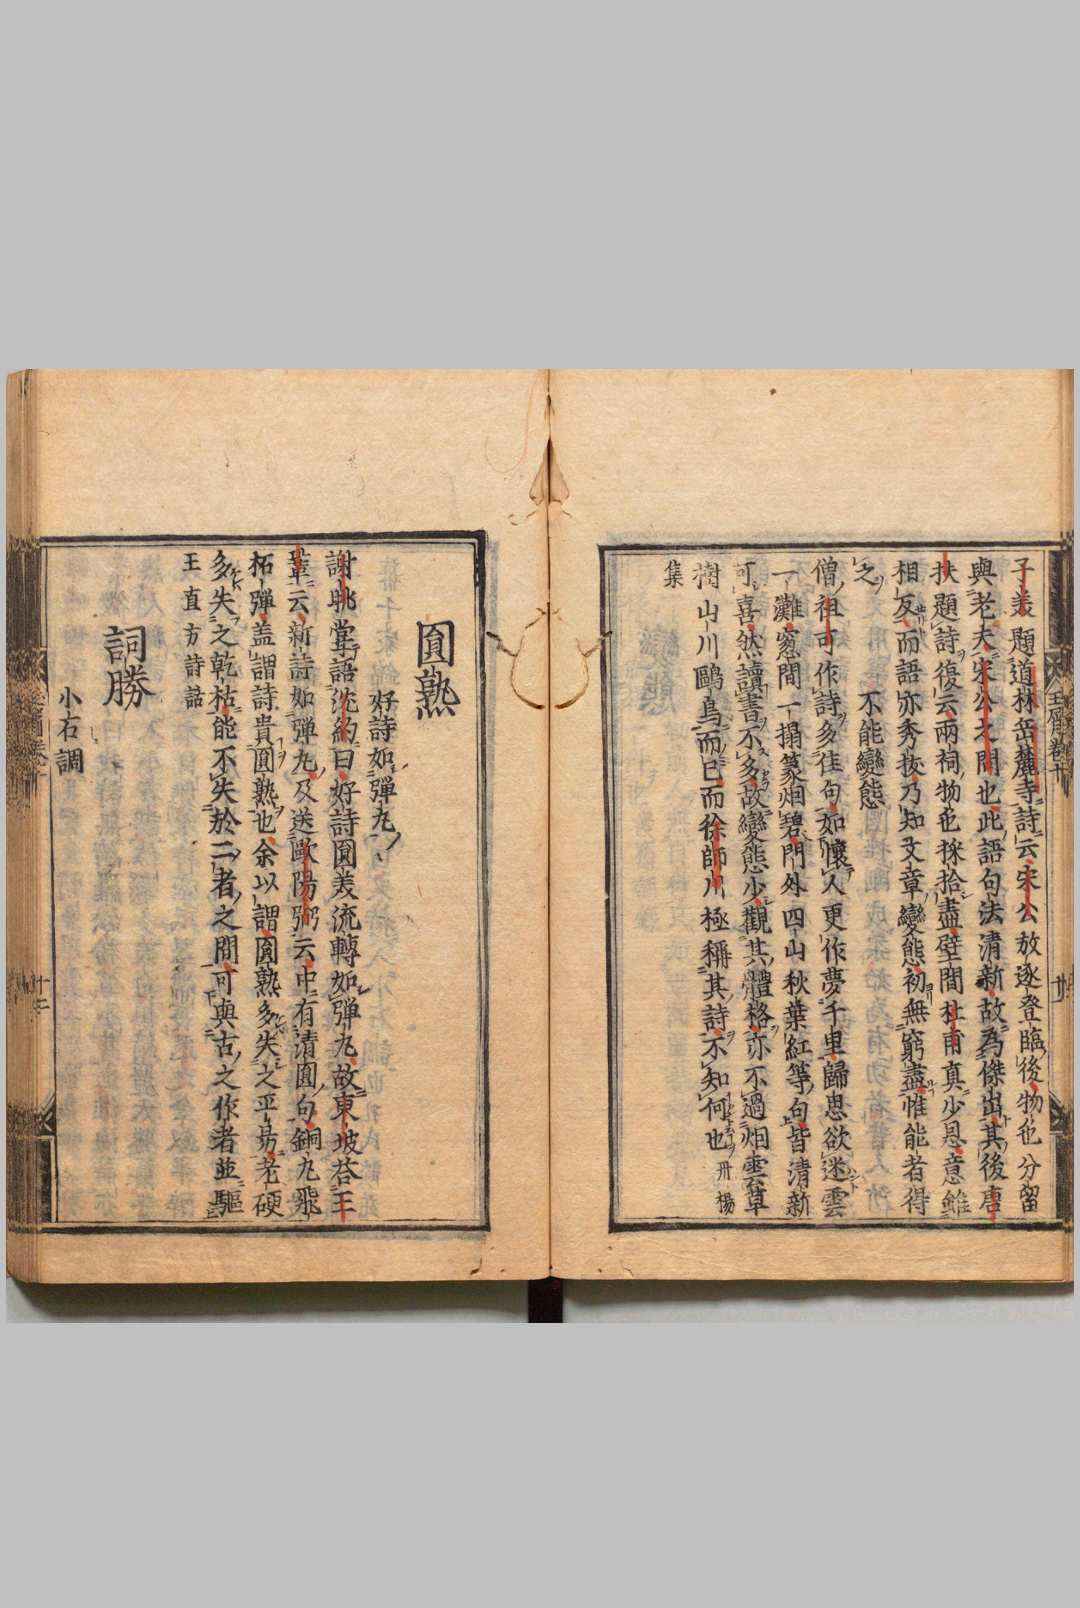 子美題道林岳麓寺詩云宋公放逐登臨後物色分留
與老夫宋公之問也此語句法清新故為傑出其後唐
扶題詩復云兩祠物色採拾盡壁間杜甫真少恩意雖
相反而語亦秀拔乃知文章變態初無窮盡惟能者得
之
不能變態
僧祖可作詩多佳句如懷人更作夢千里歸思欲迷雲
一灘窓間一榻篆烟碧門外四山秋葉紅等句皆清新
可喜然讀書不多故變態少觀其體格亦不過烟雲草
樹山川鷗鳥而已而徐師川極稱其詩不知何也丹楊
集
玉屑卷十
廿
圓熟
好詩如彈丸
謝朓嘗語沈約曰好詩圓美流轉如彈丸故東坡荅王
鞏云新詩如彈丸及送歐陽弼云中有清圓句銅丸飛
柘彈盖謂詩貴圓熟也余以謂圓熟多失之平易老硬
多失之乾枯能不失於二者之間可與古之作者並驅
王直方詩話
詞勝
小右調